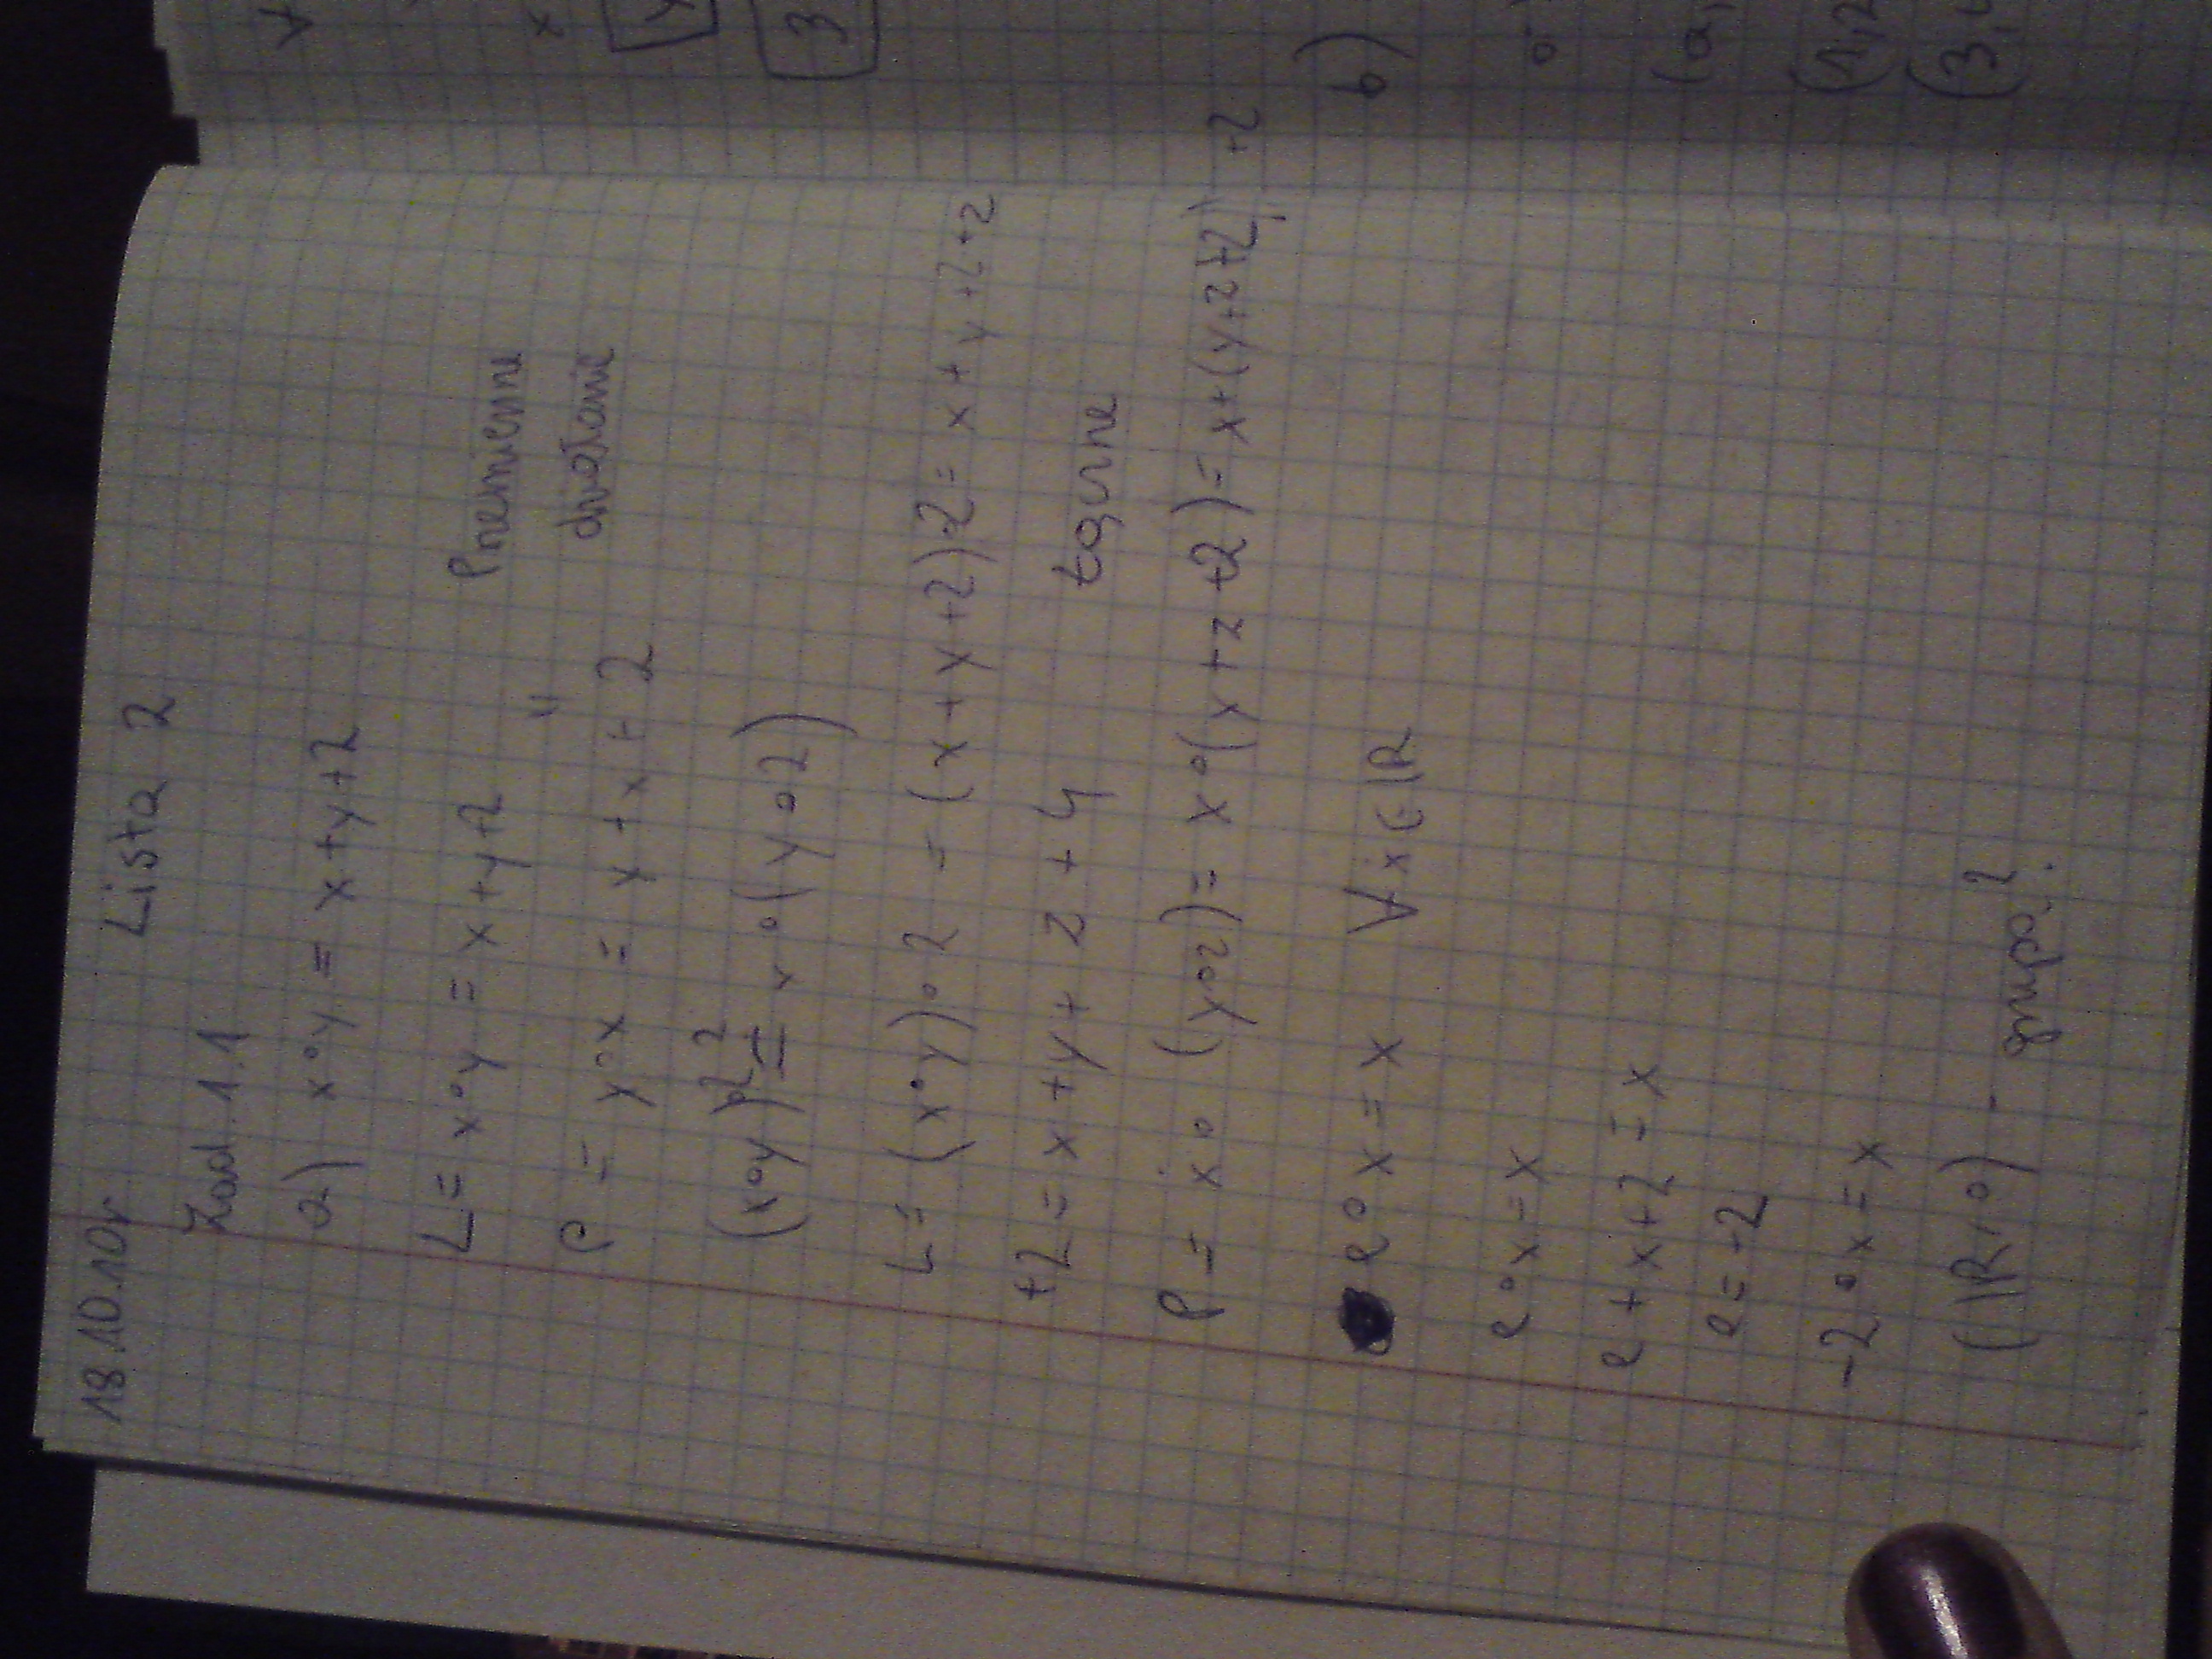 18.10.10r. Lista 2
Zad. 1.1
a) x∘y = x+y+2
L = x∘y = x+y+2 Przemienne
"
P = y∘x = y+x+2 działanie
(x∘y)∘z ≟ x∘(y∘z)
L = (x∘y)∘z = (x+y+2)∘z = x+y+2+z
+2 = x+y+z+4 łączne
P = x∘(y∘z) = x∘(y+z+2) = x+(y+z+2)+2
e∘x = x ∀x∈ℝ
e∘x = x
e+x+2 = x
e = -2
-2∘x = x
(ℝ,∘) - grupą?
b)
(a,
(1,2
(3,
3